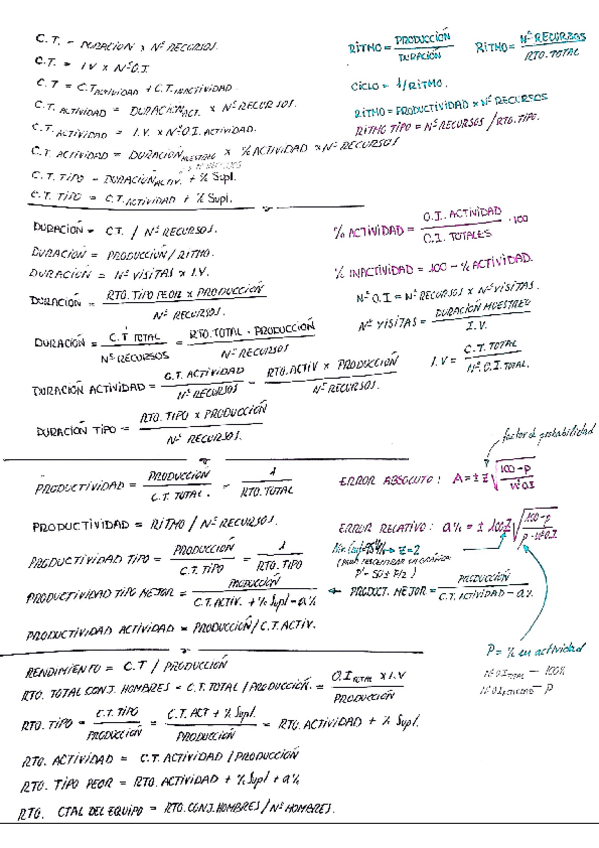 C.T. = DURACIÓN x Nº RECURSOS.
C.T. = I.V x Nº O.I.
C.T = C.T ACTIVIDAD + C.T. INACTIVIDAD.
C.T. ACTIVIDAD = DURACIÓN ACT. x Nº RECURSOS.
C.T. ACTIVIDAD = I.V. x Nº O.I. ACTIVIDAD.
C.T. ACTIVIDAD = DURACIÓN MUESTREO x % ACTIVIDAD x Nº RECURSOS
C.T. TIPO = DURACIÓN ACTIV. + % Supl.
C.T. TIPO = C.T. ACTIVIDAD + % Supl.
RITMO = PRODUCCIÓN / DURACIÓN RITMO = Nº RECURSOS / RTO. TOTAL
CICLO = 1/RITMO.
RITMO = PRODUCTIVIDAD x Nº RECURSOS
RITMO TIPO = Nº RECURSOS / RTO. TIPO.
DURACIÓN = CT. / Nº RECURSOS.
DURACIÓN = PRODUCCIÓN / RITMO.
DURACIÓN = Nº VISITAS x I.V.
DURACIÓN = RTO. TIPO PEOR x PRODUCCIÓN / Nº RECURSOS.
DURACIÓN = C.T TOTAL / Nº RECURSOS = RTO. TOTAL · PRODUCCIÓN / Nº RECURSOS
DURACIÓN ACTIVIDAD = C.T. ACTIVIDAD / Nº RECURSOS = RTO. ACTIV x PRODUCCIÓN / Nº RECURSOS.
DURACIÓN TIPO = RTO. TIPO x PRODUCCIÓN / Nº RECURSOS.
% ACTIVIDAD = O.I. ACTIVIDAD / O.I. TOTALES · 100
% INACTIVIDAD = 100 - % ACTIVIDAD.
Nº O.I = Nº RECURSOS x Nº VISITAS.
Nº VISITAS = DURACIÓN MUESTREO / I.V.
I.V = C.T. TOTAL / Nº. O.I. TOTAL.
PRODUCTIVIDAD = PRODUCCIÓN / C.T. TOTAL. = 1 / RTO. TOTAL
PRODUCTIVIDAD = RITMO / Nº RECURSOS.
PRODUCTIVIDAD TIPO = PRODUCCIÓN / C.T. TIPO = 1 / RTO. TIPO
PRODUCTIVIDAD TIPO MEJOR = PRODUCCIÓN / C.T. ACTIV. + % Supl - a%
PRODUCTIVIDAD ACTIVIDAD = PRODUCCIÓN / C.T. ACTIV.
factor de probabilidad
ERROR ABSOLUTO: A = ± Z √ 100 - p / Nº O.I
ERROR RELATIVO: a% = ± 100Z √ 100 - p / p · Nº O.I
→ Z = 2
← PRODUCT. MEJOR = PRODUCCIÓN / C.T. ACTIVIDAD - a%.
P = % en actividad
Nº O.I TOTAL — 100%
— P
RENDIMIENTO = C.T / PRODUCCIÓN
RTO. TOTAL CONJ. HOMBRES = C.T. TOTAL / PRODUCCIÓN. = O.I TOTAL x I.V / PRODUCCIÓN
RTO. TIPO = C.T. TIPO / PRODUCCIÓN = C.T. ACT + % Supl. / PRODUCCIÓN = RTO. ACTIVIDAD + % Supl.
RTO. ACTIVIDAD = C.T. ACTIVIDAD / PRODUCCIÓN
RTO. TIPO PEOR = RTO. ACTIVIDAD + % Supl + a%
RTO. CTAL DEL EQUIPO = RTO. CONJ. HOMBRES / Nº HOMBRES.